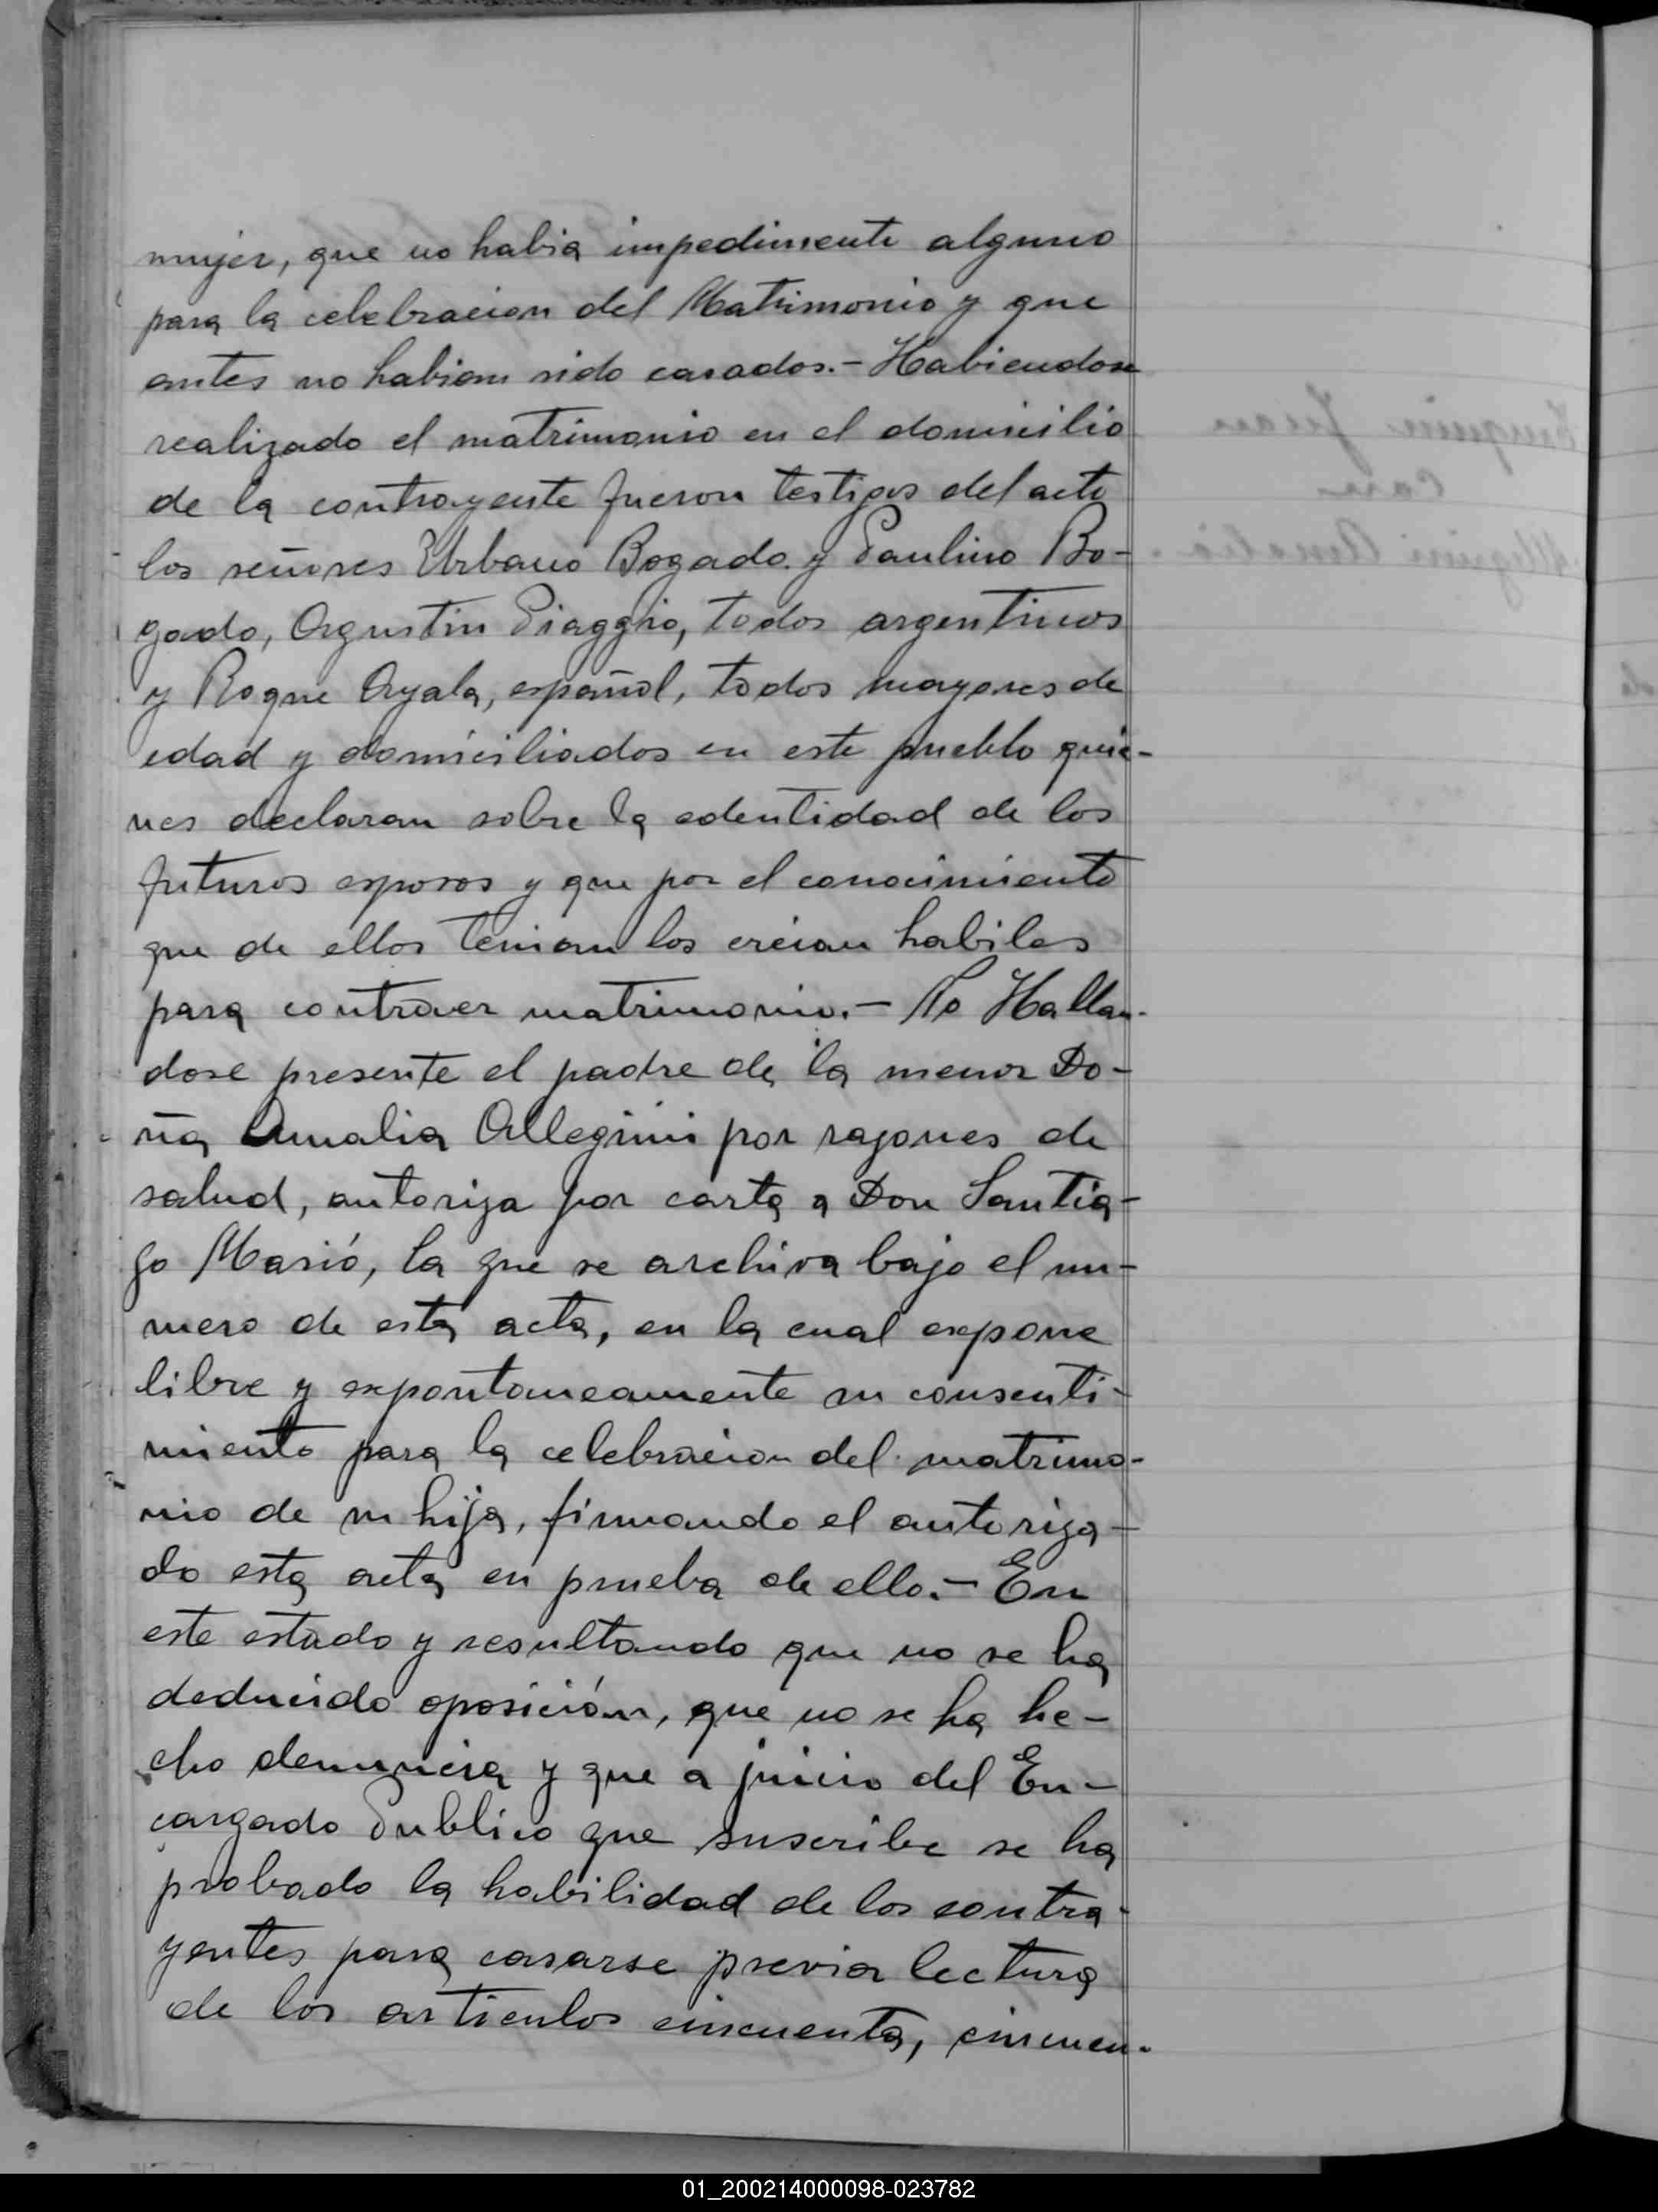 mujer, que no habia impedimento alguno
para la celebracion del Matrimonio y que
antes no habian sido casados.- Habiendose
realizado el matrimonio en el domicilio
de la contrayente fueron testigos del acto
los señores Urbano Bogado y Paulino Bo-
gado, Agustin Piaggio, todos argentinos
y Roque Ayala, español, todos mayores de
edad y domiciliados en este pueblo quie-
nes declaran sobre la edentidad de los
futuros esposos y que por el conocimiento
que de ellos tenian los creian habiles
para contraer matrimonio.- No Hallan-
dose presente el padre de la menor Do-
ña Amalia Allegrini por razones de
salud, autoriza por carta a Don Santia-
go Masió, la que se archiva bajo el nu-
mero de esta acta, en la cual expone
libre y expontaneamente su consenti-
miento para la celebracion del matrimo-
nio de su hija, firmando el autoriza-
do esta acta en prueba de ello.- En
este estado y resultando que no se ha
deducido oposición, que no se ha he-
cho denuncia y que a juicio del En-
cargado Publico que suscribe se ha
probado la habilidad de los contra-
yentes para casarse previa lectura
de los articulos cincuenta, cincuen-
01_200214000098-023782